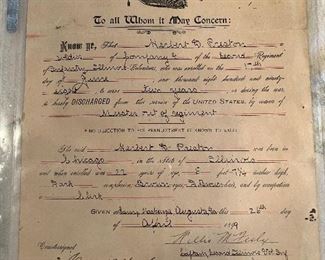 To all Whom it May Concern:
Know ye, That Herbert G. Preston a
of Company C of the Second Regiment
of Infantry Illinois Volunteers, who was enrolled on the 17th
day of June one thousand eight hundred and ninety
eight to serve two years or during the war,
is hereby DISCHARGED from the service of the UNITED STATES, by reason of
Muster out of regiment
NO OBJECTION TO HIS REENLISTMENT IS KNOWN TO EXIST.
The said Herbert G. Preston was born in
Chicago in the State of Illinois
and when enrolled was 22 years of age, 5 feet 7 inches
Dark complexion Brown eyes, hair, and by occupation
a Clerk
GIVEN at Camp Augusta Ga this 26th day
of April 1899
Willis M
Countersigned:
Captain Second Illinois Vol. Inf